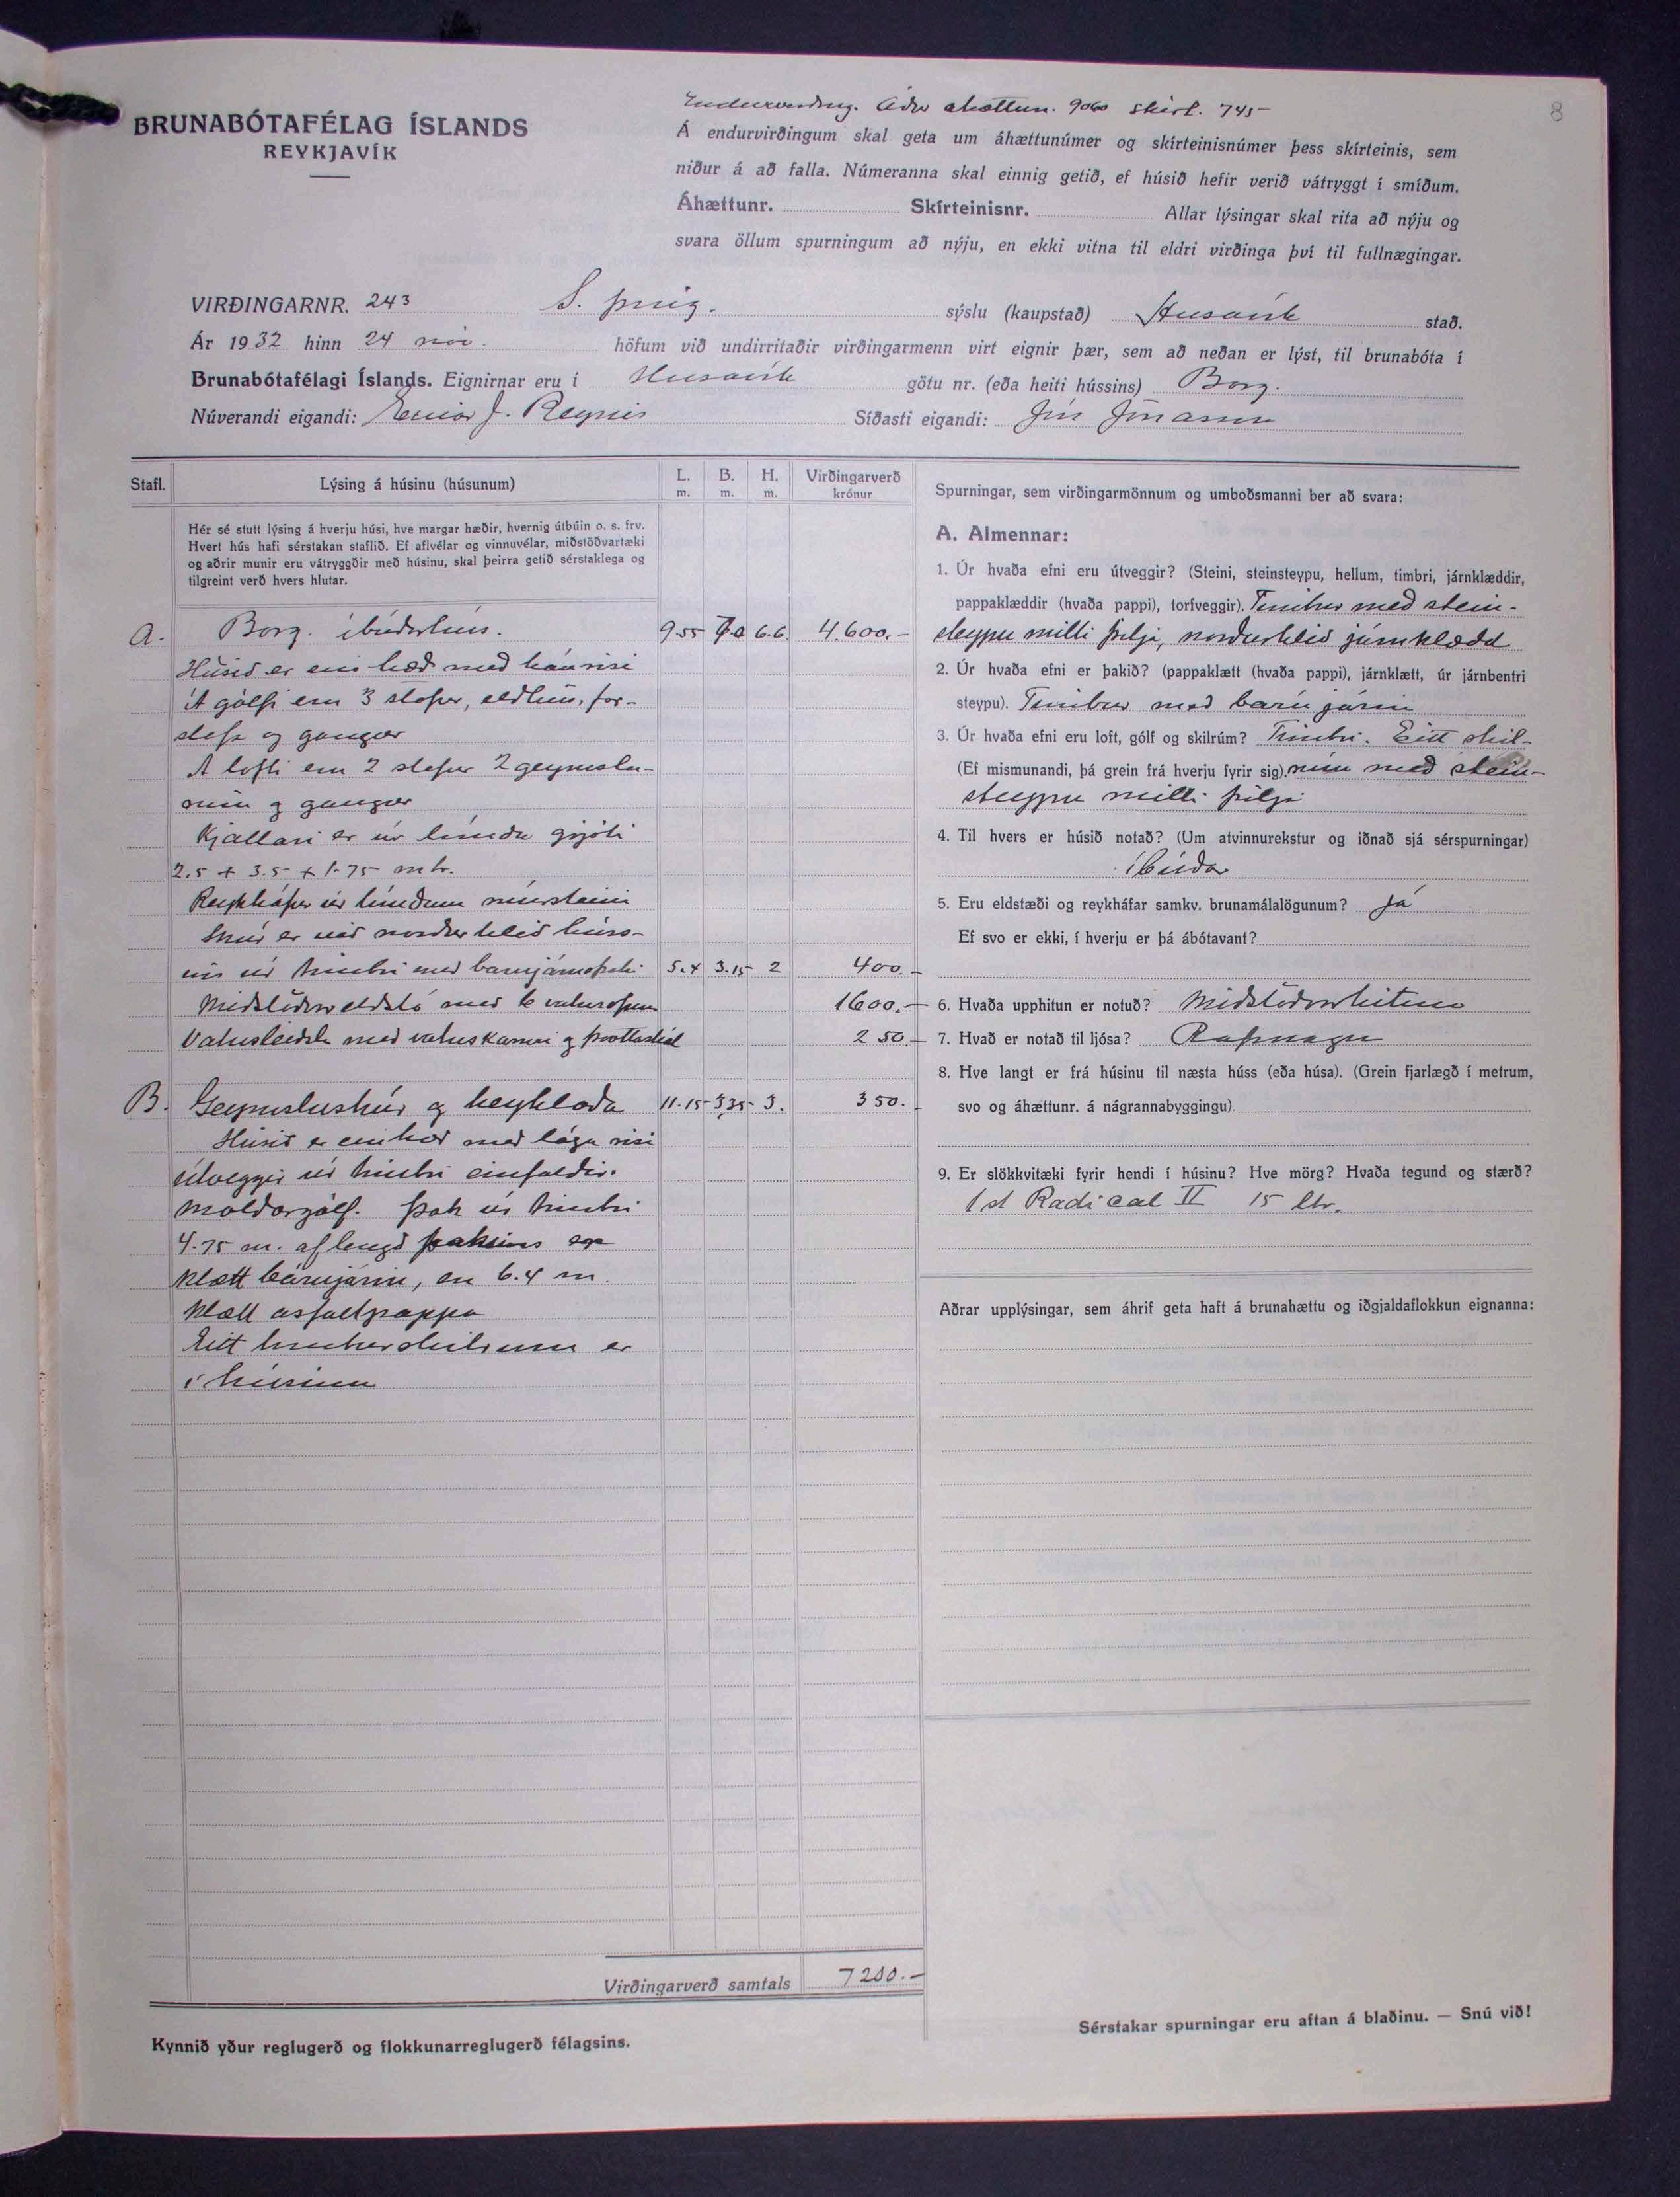 8
Endurvirðing. Áður áhættun. 9060 skírt. 745
BRUNABÓTAFÉLAG ÍSLANDS
REYKJAVÍK
Á endurvirðingum skal geta um áhættunúmer og skírteinisnúmer þess skírteinis, sem
niður á að falla. Númeranna skal einnig getið, ef húsið hefir verið vátryggt í smíðum.
Áhættunr. Skírteinisnr. Allar lýsingar skal rita að nýju og
svara öllum spurningum að nýju, en ekki vitna til eldri virðinga því til fullnægingar.
VIRÐINGARNR. 243 S. Þing. sýslu (kaupstað) Húsavík stað.
Ár 1932 hinn 24 nóv. höfum við undirritaðir virðingarmenn virt eignir þær, sem að neðan er lýst, til brunabóta í
Brunabótafélagi Íslands. Eignirnar eru í Húsavík götu nr. (eða heiti hússins) Borg.
Núverandi eigandi: Einar J. Reynis Síðasti eigandi: Jón Jónasson
Stafl. Lýsing á húsinu (húsunum) L. m. B. m. H. m. Virðingarverð krónur
Hér sé stutt lýsing á hverju húsi, hve margar hæðir, hvernig útbúin o. s. frv.
Hvert hús hafi sérstakan staflið. Ef aflvélar og vinnuvélar, miðstöðvartæki
og aðrir munir eru vátryggðir með húsinu, skal þeirra getið sérstaklega og
tilgreint verð hvers hlutar.
A. Borg. íbúðarhús. 9.55 7.0 6.6 4.600.-
Húsið er ein hæð með háu risi
Á gólfi eru 3 stofur, eldhús, for-
stofa og gangur
Á lofti eru 2 stofur 2 geymslu-
rúm og gangur
Kjallari er úr límdu grjóti
2.5 + 3.5 + 1.75 mtr.
Reykháfur úr límdum múrsteini
Skúr er við norður hlið húss-
ins úr timbri með bárujárnsþaki 5.4 3.15 2 400.-
Miðstöðvareldstó með 6 vatnsofnum 1600.-
Vatnsleiðsla með vatnskrana og þvottaskál 250.-
B. Geymsluskúr og heyhlaða 11.15 3.35 3. 350.-
Húsið er ein hæð með lágu risi
Útveggir úr timbri einfaldir.
Moldargólf. Þak úr timbri
4.75 m. af lengd þaksins er
klætt bárujárni, en 6.4 m.
klætt asfaltpappa
Eitt timburskilrúm er
í húsinu
Virðingarverð samtals 7200.-
Spurningar, sem virðingarmönnum og umboðsmanni ber að svara:
A. Almennar:
1. Úr hvaða efni eru útveggir? (Steini, steinsteypu, hellum, timbri, járnklæddir,
pappaklæddir (hvaða pappi), torfveggir). Timbur með stein-
steypu milli þilja, norðurhlið járnklædd
2. Úr hvaða efni er þakið? (pappaklætt (hvaða pappi), járnklætt, úr járnbentri
steypu). Timbur með bárujárni
3. Úr hvaða efni eru loft, gólf og skilrúm? Timbri. Eitt skil-
(Ef mismunandi, þá grein frá hverju fyrir sig). rúm með stein-
steypu milli þilja
4. Til hvers er húsið notað? (Um atvinnurekstur og iðnað sjá sérspurningar)
íbúðar
5. Eru eldstæði og reykháfar samkv. brunamálalögunum? Já
Ef svo er ekki, í hverju er þá ábótavant?
6. Hvaða upphitun er notuð? Miðstöðvarhitun
7. Hvað er notað til ljósa? Rafmagn
8. Hve langt er frá húsinu til næsta húss (eða húsa). (Grein fjarlægð í metrum,
svo og áhættunr. á nágrannabyggingu).
9. Er slökkvitæki fyrir hendi í húsinu? Hve mörg? Hvaða tegund og stærð?
1 st Radical II 15 ltr.
Aðrar upplýsingar, sem áhrif geta haft á brunahættu og iðgjaldaflokkun eignanna:
Kynnið yður reglugerð og flokkunarreglugerð félagsins.
Sérstakar spurningar eru aftan á blaðinu. — Snú við!